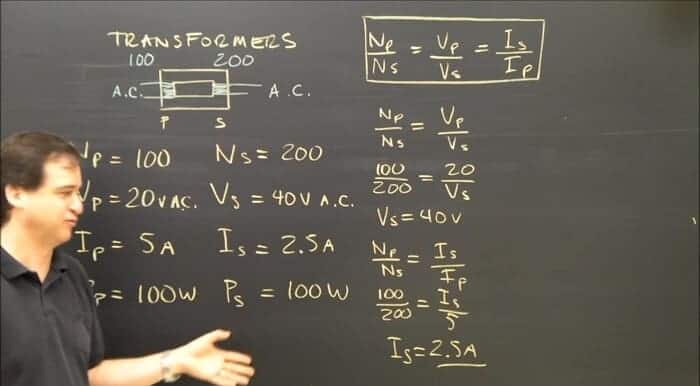 TRANSFORMERS
100 200
A.C. A.C.
P S
Np = 100 Ns = 200
Vp = 20V AC. Vs = 40V A.C.
Ip = 5A Is = 2.5A
Pp = 100W Ps = 100W
Np/Ns = Vp/Vs = Is/Ip
Np/Ns = Vp/Vs
100/200 = 20/Vs
Vs = 40V
Np/Ns = Is/Ip
100/200 = Is/5
Is = 2.5A